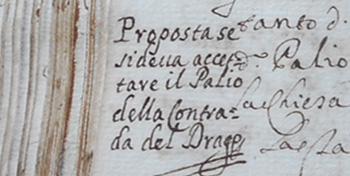 Proposta se
si deva accet-
tare il Palio
della Contra-
da del Drago
tanto d.
Palio
la Chiesa